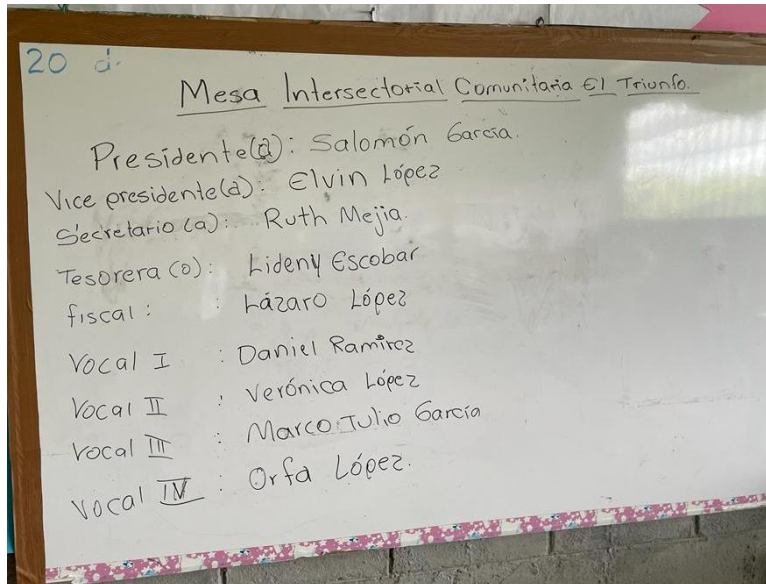 20 d.
Mesa Intersectorial Comunitaria El Triunfo.
Presidente(a): Salomón García.
Vice presidente(a): Elvin López
Secretario (a): Ruth Mejia.
Tesorera (o): Lideny Escobar
fiscal: : Lázaro López
Vocal I : Daniel Ramirez
Vocal II : Verónica López
Vocal III : Marco Tulio García
Vocal IV : Orfa López.